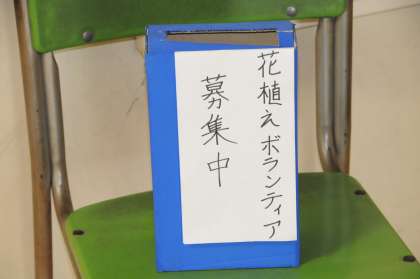 花植えボランティア
募集中